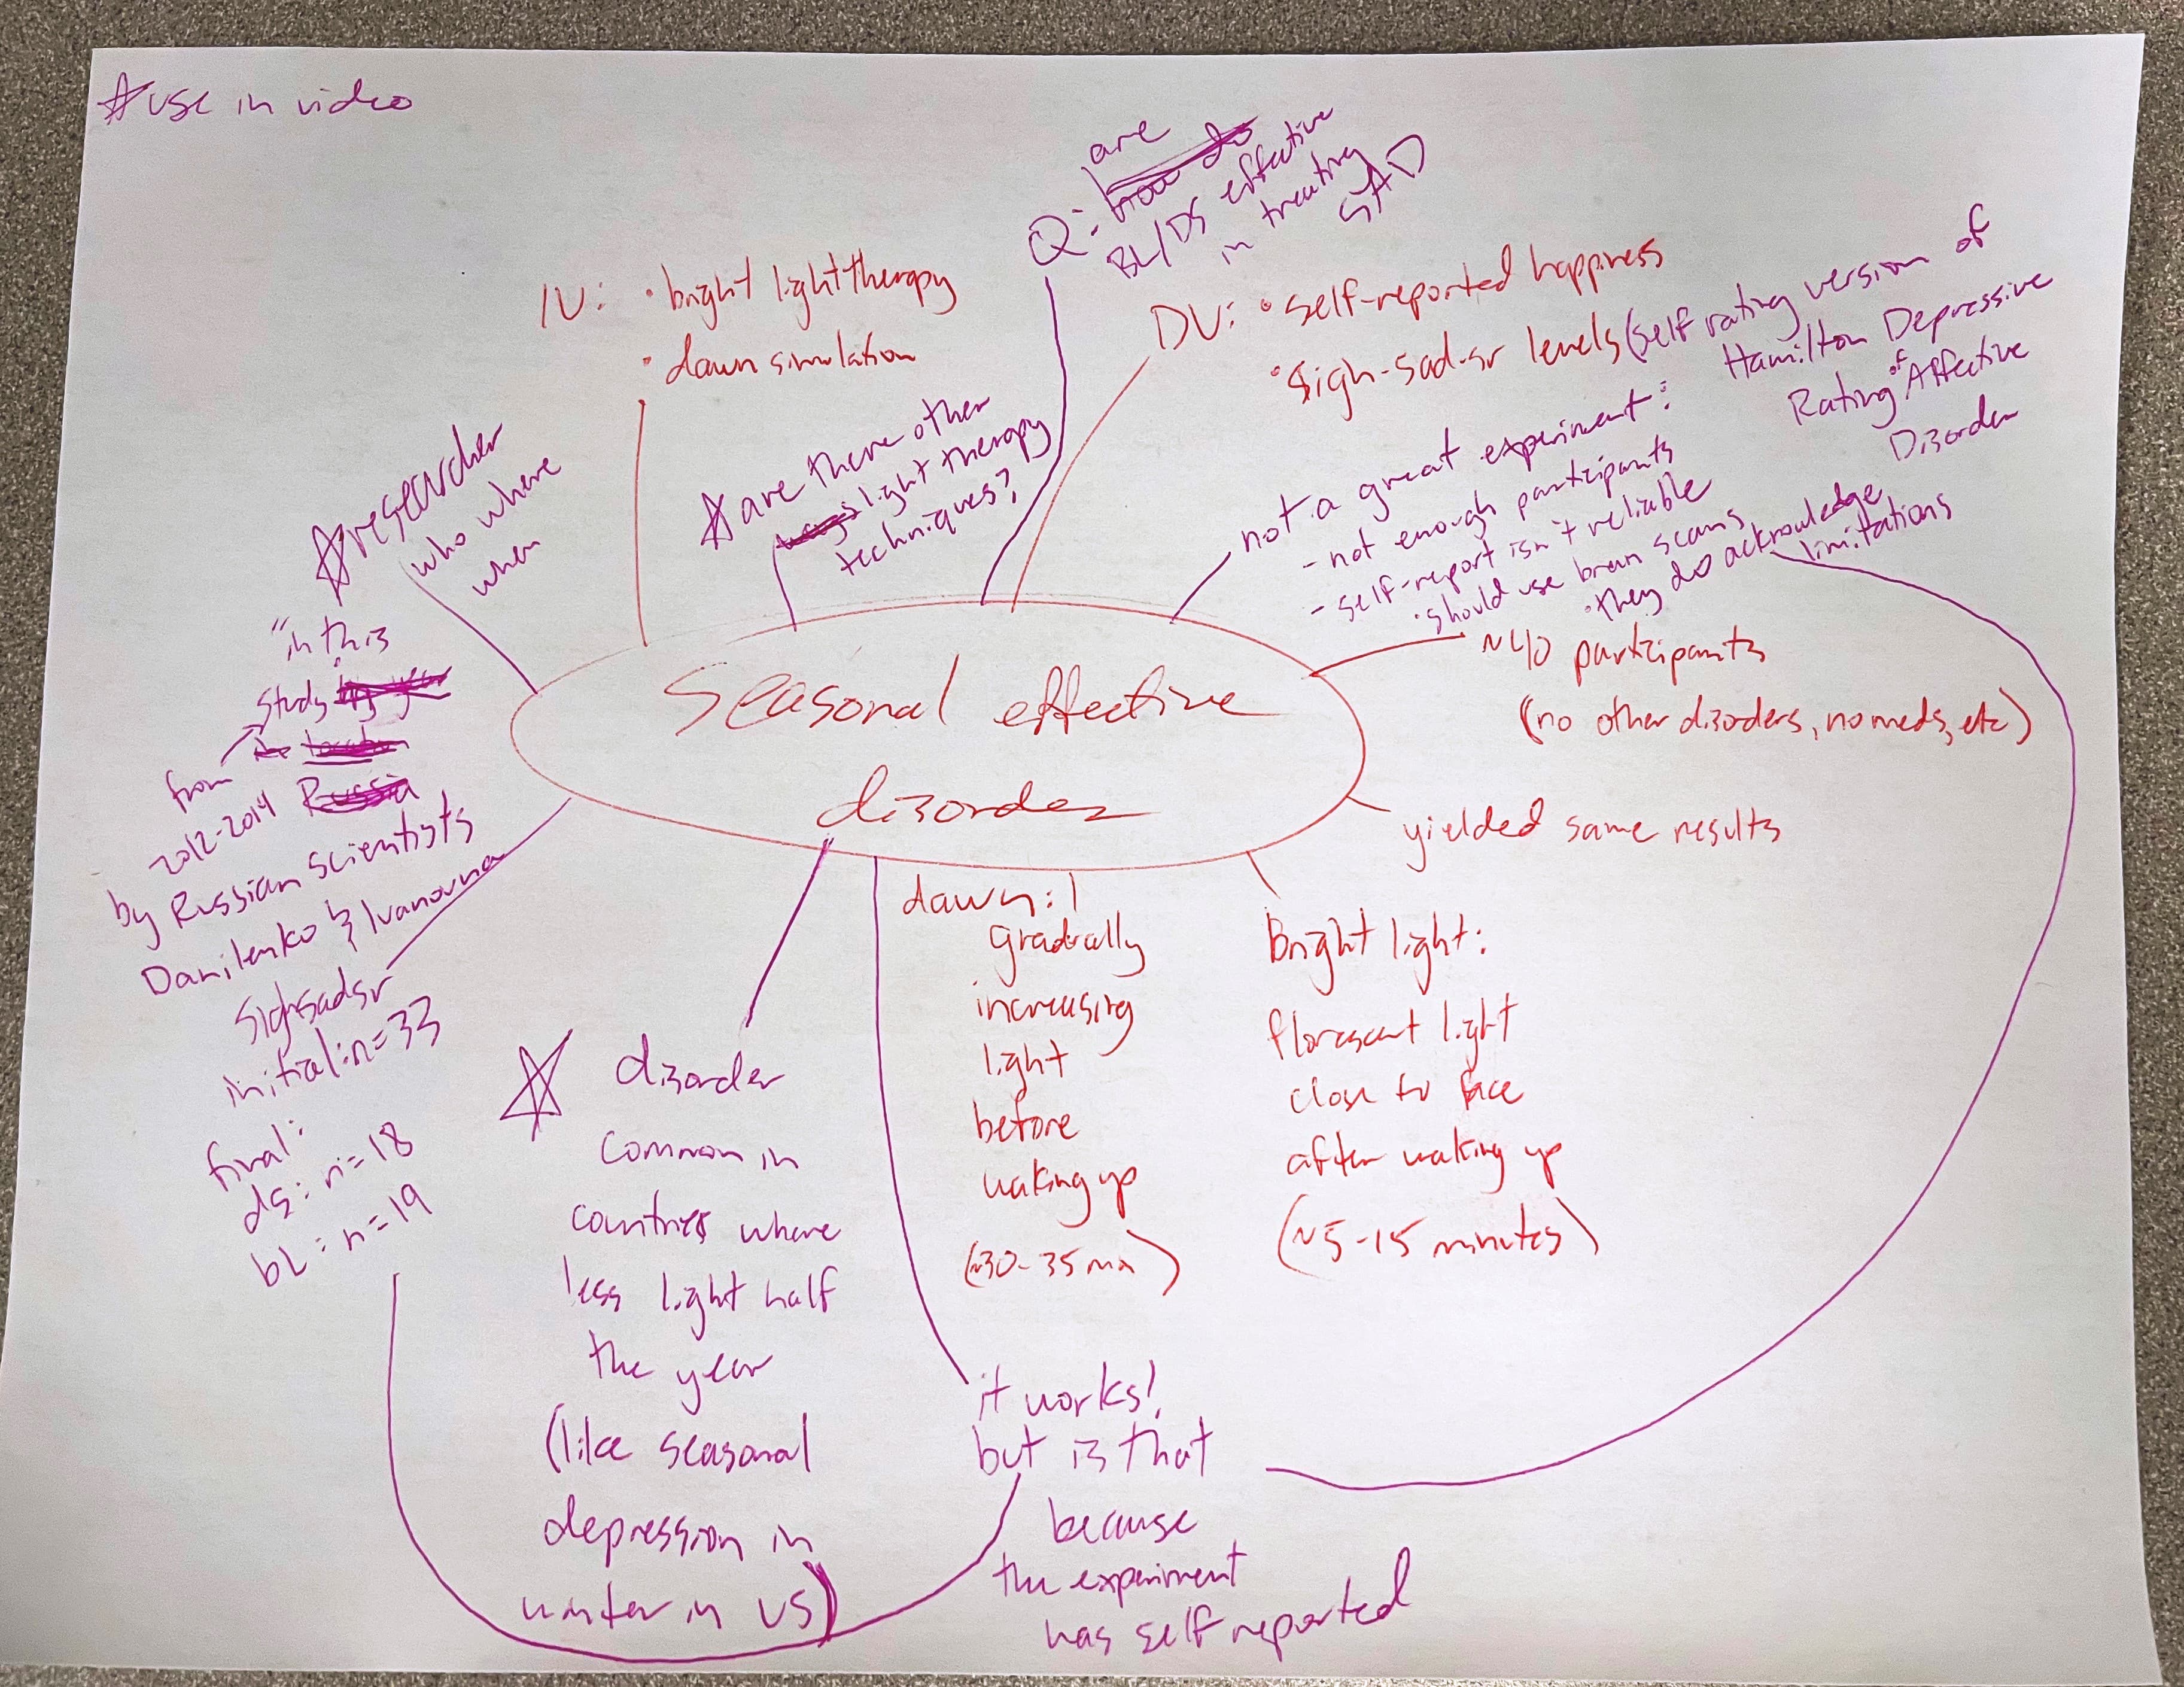 ☆use in video
are
Q: how do
BL/DS effective
in treating
SAD
IV: • bright light therapy
• dawn simulation
DV: • self-reported happiness
• Sigh-sad-sr levels (self rating version of
Hamilton Depressive
Rating of Affective
Disorder
☆researcher
who where
when
☆are there other
light therapy
techniques?
not a great experiment:
- not enough participants
- self-report isn't reliable
• should use brain scans
• they do acknowledge
limitations
~40 participants
(no other disorders, no meds, etc)
yielded same results
Seasonal effective
disorder
"in this
study
from
2012-2014 Russia
by Russian scientists
Danilenko & Ivanovna
Sighsadsr
initial: n=33
final:
ds: n=18
bL: n=19
☆ disorder
common in
countries where
less light half
the year
(like seasonal
depression in
winter in US)
dawn:
gradually
increasing
light
before
waking up
(~30-35 min)
Bright light:
florescent light
close to face
after waking up
(~5-15 minutes)
it works!
but is that
because
the experiment
was self reported